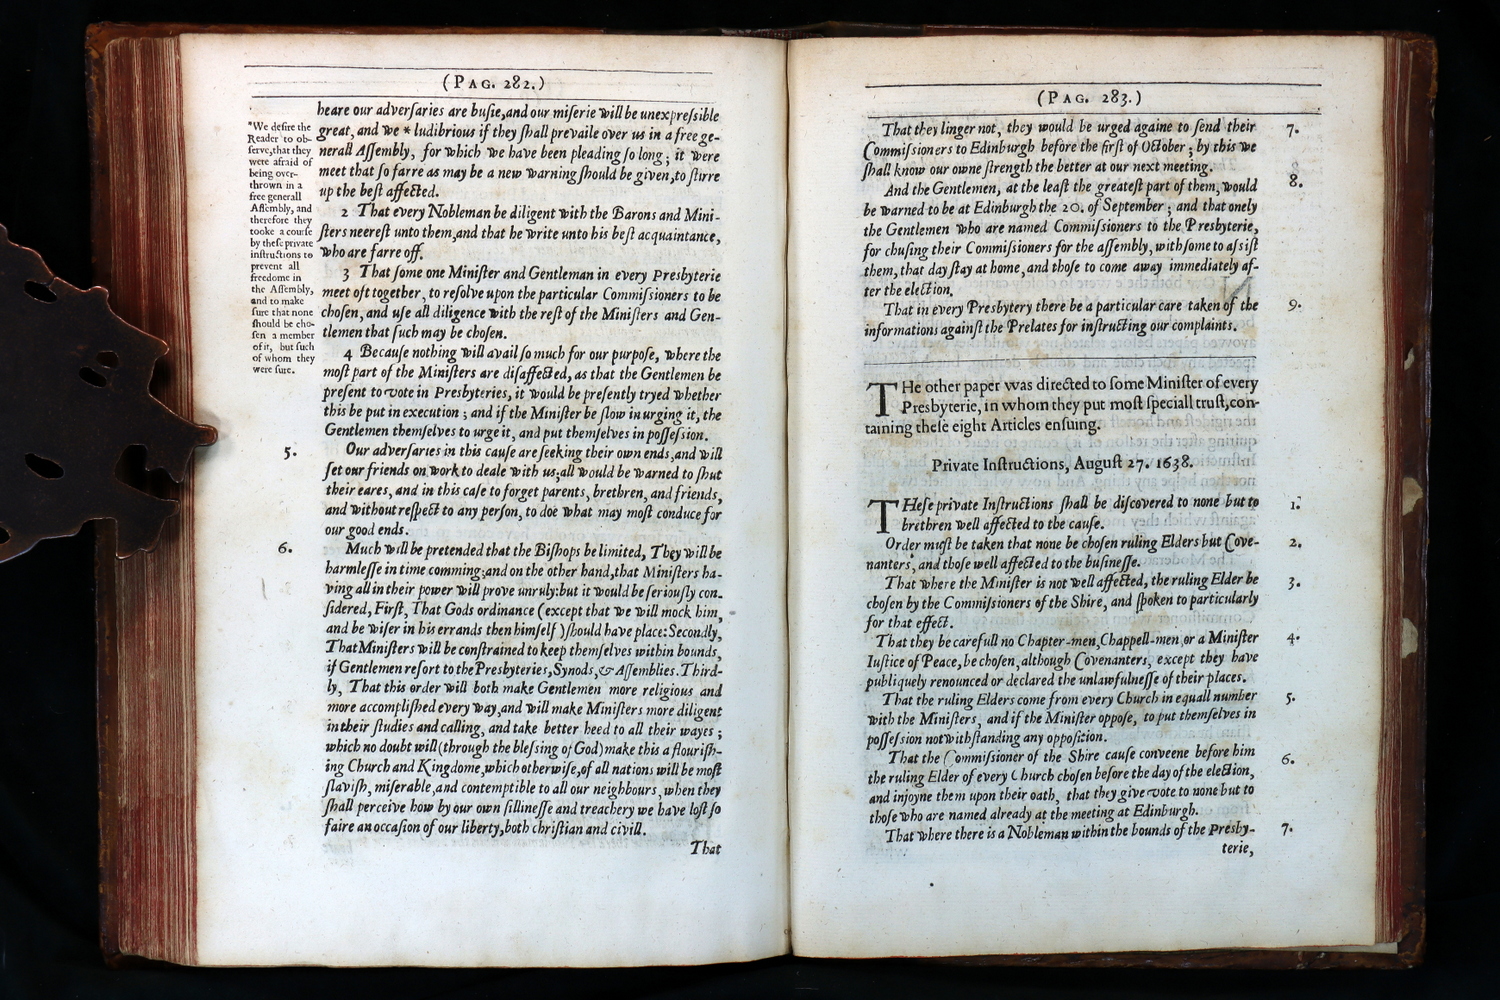 (PAG. 282.)
heare our adversaries are busie,and our miserie will be unexpressible
great, and we * ludibrious if they shall prevaile over us in a free ge-
nerall Assembly, for which we have been pleading so long; it were
meet that so farre as may be a new warning should be given,to stirre
up the best affected.
2 That every Nobleman be diligent with the Barons and Mini-
sters neerest unto them,and that he write unto his best acquaintance,
who are farre off.
3 That some one Minister and Gentleman in every Presbyterie
meet oft together, to resolve upon the particular Commissioners to be
chosen, and use all diligence with the rest of the Ministers and Gen-
tlemen that such may be chosen.
4 Because nothing will avail so much for our purpose, where the
most part of the Ministers are disaffected, as that the Gentlemen be
present to vote in Presbyteries, it would be presently tryed whether
this be put in execution; and if the Minister be slow in urging it, the
Gentlemen themselves to urge it, and put themselves in possession.
5. Our adversaries in this cause are seeking their own ends,and will
set our friends on work to deale with us;all would be warned to shut
their eares, and in this case to forget parents, brethren, and friends,
and without respect to any person, to doe what may most conduce for
our good ends.
6. Much will be pretended that the Bishops be limited, They will be
harmlesse in time comming;and on the other hand,that Ministers ha-
ving all in their power will prove unruly:but it would be seriously con-
sidered, First, That Gods ordinance (except that we will mock him,
and be wiser in his errands then himself )should have place:Secondly,
That Ministers will be constrained to keep themselves within bounds,
if Gentlemen resort to the Presbyteries,Synods,& Assemblies.Third-
ly, That this order will both make Gentlemen more religious and
more accomplished every way,and will make Ministers more diligent
in their studies and calling, and take better heed to all their wayes;
which no doubt will(through the blessing of God)make this a flourish-
ing Church and Kingdome,which otherwise,of all nations will be most
slavish, miserable,and contemptible to all our neighbours, when they
shall perceive how by our own sillinesse and treachery we have lost so
faire an occasion of our liberty,both christian and civill.
That
*We desire the
Reader to ob-
serve,that they
were afraid of
being over-
thrown in a
free generall
Assembly, and
therefore they
tooke a course
by these private
instructions to
prevent all
freedome in
the Assembly,
and to make
sure that none
should be cho-
sen a member
of it, but such
of whom they
were sure.
(PAG. 283.)
That they linger not, they would be urged againe to send their 7.
Commissioners to Edinburgh before the first of October; by this we
shall know our owne strength the better at our next meeting.
And the Gentlemen, at the least the greatest part of them, would 8.
be warned to be at Edinburgh the 20. of September; and that onely
the Gentlemen who are named Commissioners to the Presbyterie,
for chusing their Commissioners for the assembly, with some to assist
them, that day stay at home, and those to come away immediately af-
ter the election.
That in every Presbytery there be a particular care taken of the 9.
informations against the Prelates for instructing our complaints.
THe other paper was directed to some Minister of every
Presbyterie, in whom they put most speciall trust,con-
taining these eight Articles ensuing.
Private Instructions, August 27. 1638.
THese private Instructions shall be discovered to none but to 1.
brethren well affected to the cause.
Order must be taken that none be chosen ruling Elders but Cove- 2.
nanters, and those well affected to the businesse.
That where the Minister is not well affected, the ruling Elder be 3.
chosen by the Commissioners of the Shire, and spoken to particularly
for that effect.
That they be carefull no Chapter-men,Chappell-men,or a Minister 4.
Iustice of Peace,be chosen,although Covenanters, except they have
publiquely renounced or declared the unlawfulnesse of their places.
That the ruling Elders come from every Church in equall number 5.
with the Ministers, and if the Minister oppose, to put themselves in
possession notwithstanding any opposition.
That the Commissioner of the Shire cause conveene before him 6.
the ruling Elder of every Church chosen before the day of the election,
and injoyne them upon their oath, that they give vote to none but to
those who are named already at the meeting at Edinburgh.
That where there is a Nobleman within the bounds of the Presby- 7.
terie,